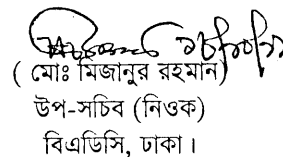 ( মোঃ মিজানুর রহমান)
উপ-সচিব (নিওক)
বিএডিসি, ঢাকা।